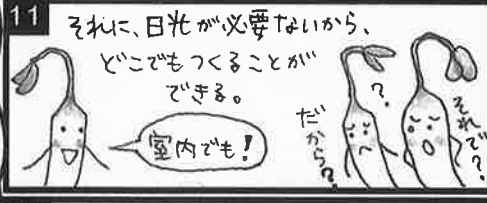 11
それに、日光が必要ないから、
どこでもつくることが
できる。
室内でも!
?
だから?
それで?